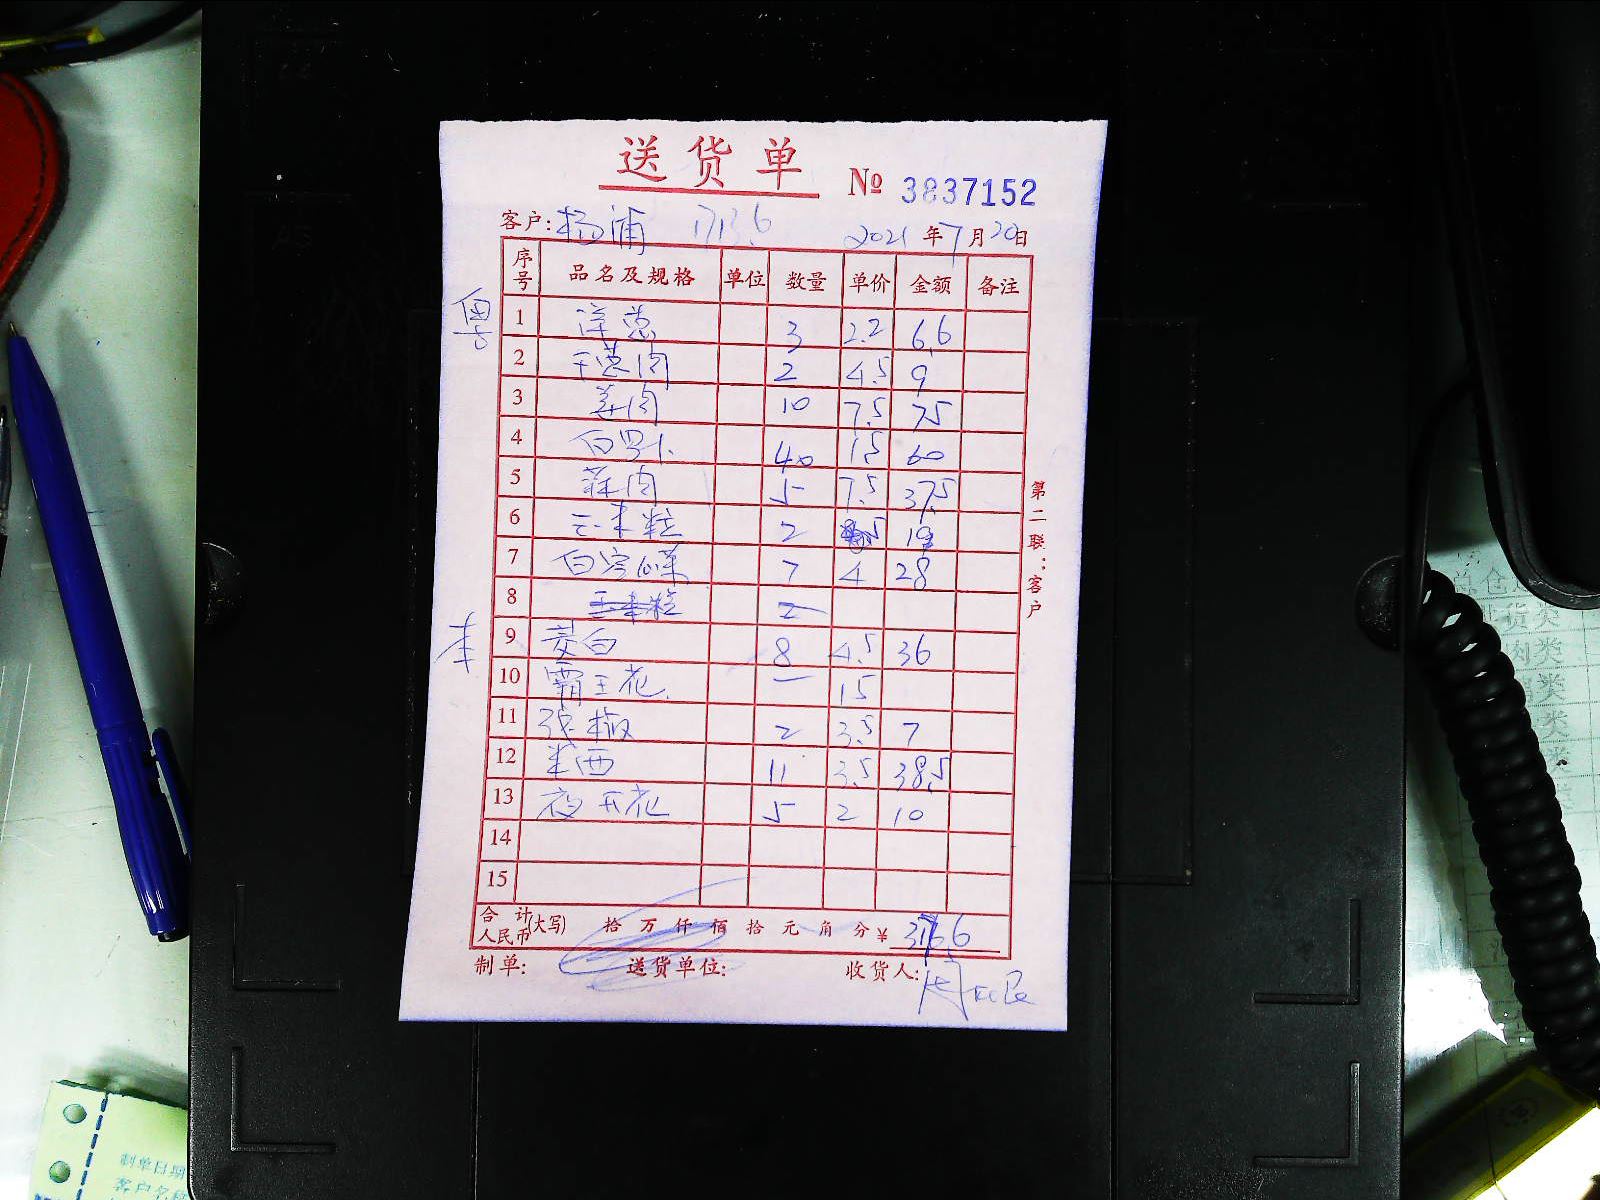 送货单
№ 3837152
客户: 杨浦 1713.6 2021年7月20日
序号 品名及规格 单位 数量 单价 金额 备注
粤
1 洋葱 3 2.2 6.6
2 干葱肉 2 4.5 9
3 姜肉 10 7.5 75
4 白罗卜 40 1.5 60
5 蒜肉 5 7.5 37.5
6 玉米粒 2 19
7 7 4 28
8 玉米粒 2
本
9 茭白 8 4.5 36
10 霸王花 一 15
11 尖椒 2 3.5 7
12 11 3.5 38.5
13 夜开花 5 2 10
14
15
合计人民币(大写) 拾 万 仟 佰 拾 元 角 分 ¥ 316.6
制单: 送货单位: 收货人:
第二联:客户
单
货类
肉类
类
类
类
制单日期
客户名称